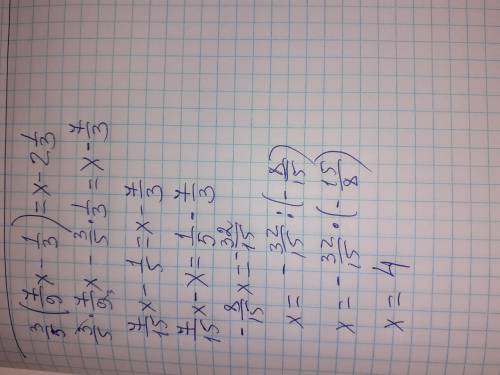 3/5(7/9x - 1/3) = x - 2 1/3
3/5 · 7/9x - 3/5 · 1/3 = x - 7/3
7/15x - 1/5 = x - 7/3
7/15x - x = 1/5 - 7/3
-8/15x = -32/15
x = -32/15 : (-8/15)
x = -32/15 · (-15/8)
x = 4